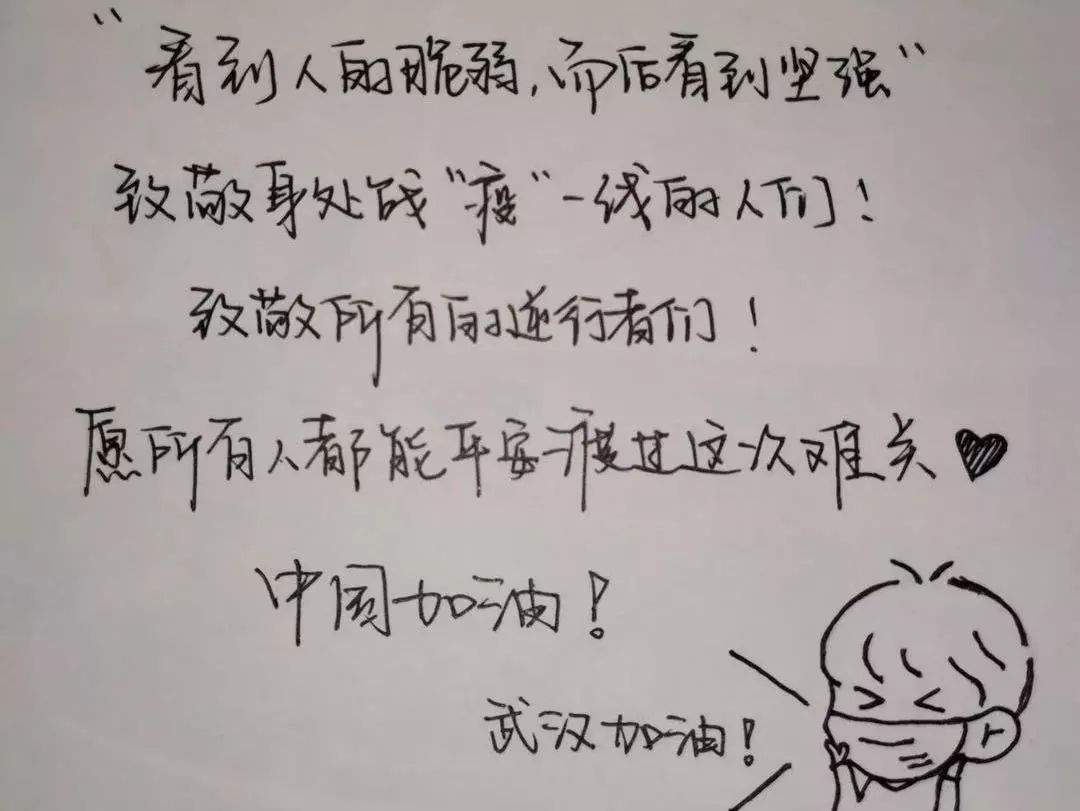 “看到人的脆弱，而后看到坚强”
致敬身处战“疫”一线的人们！
致敬所有的逆行者们！
愿所有人都能平安渡过这次难关
中国加油！
武汉加油！